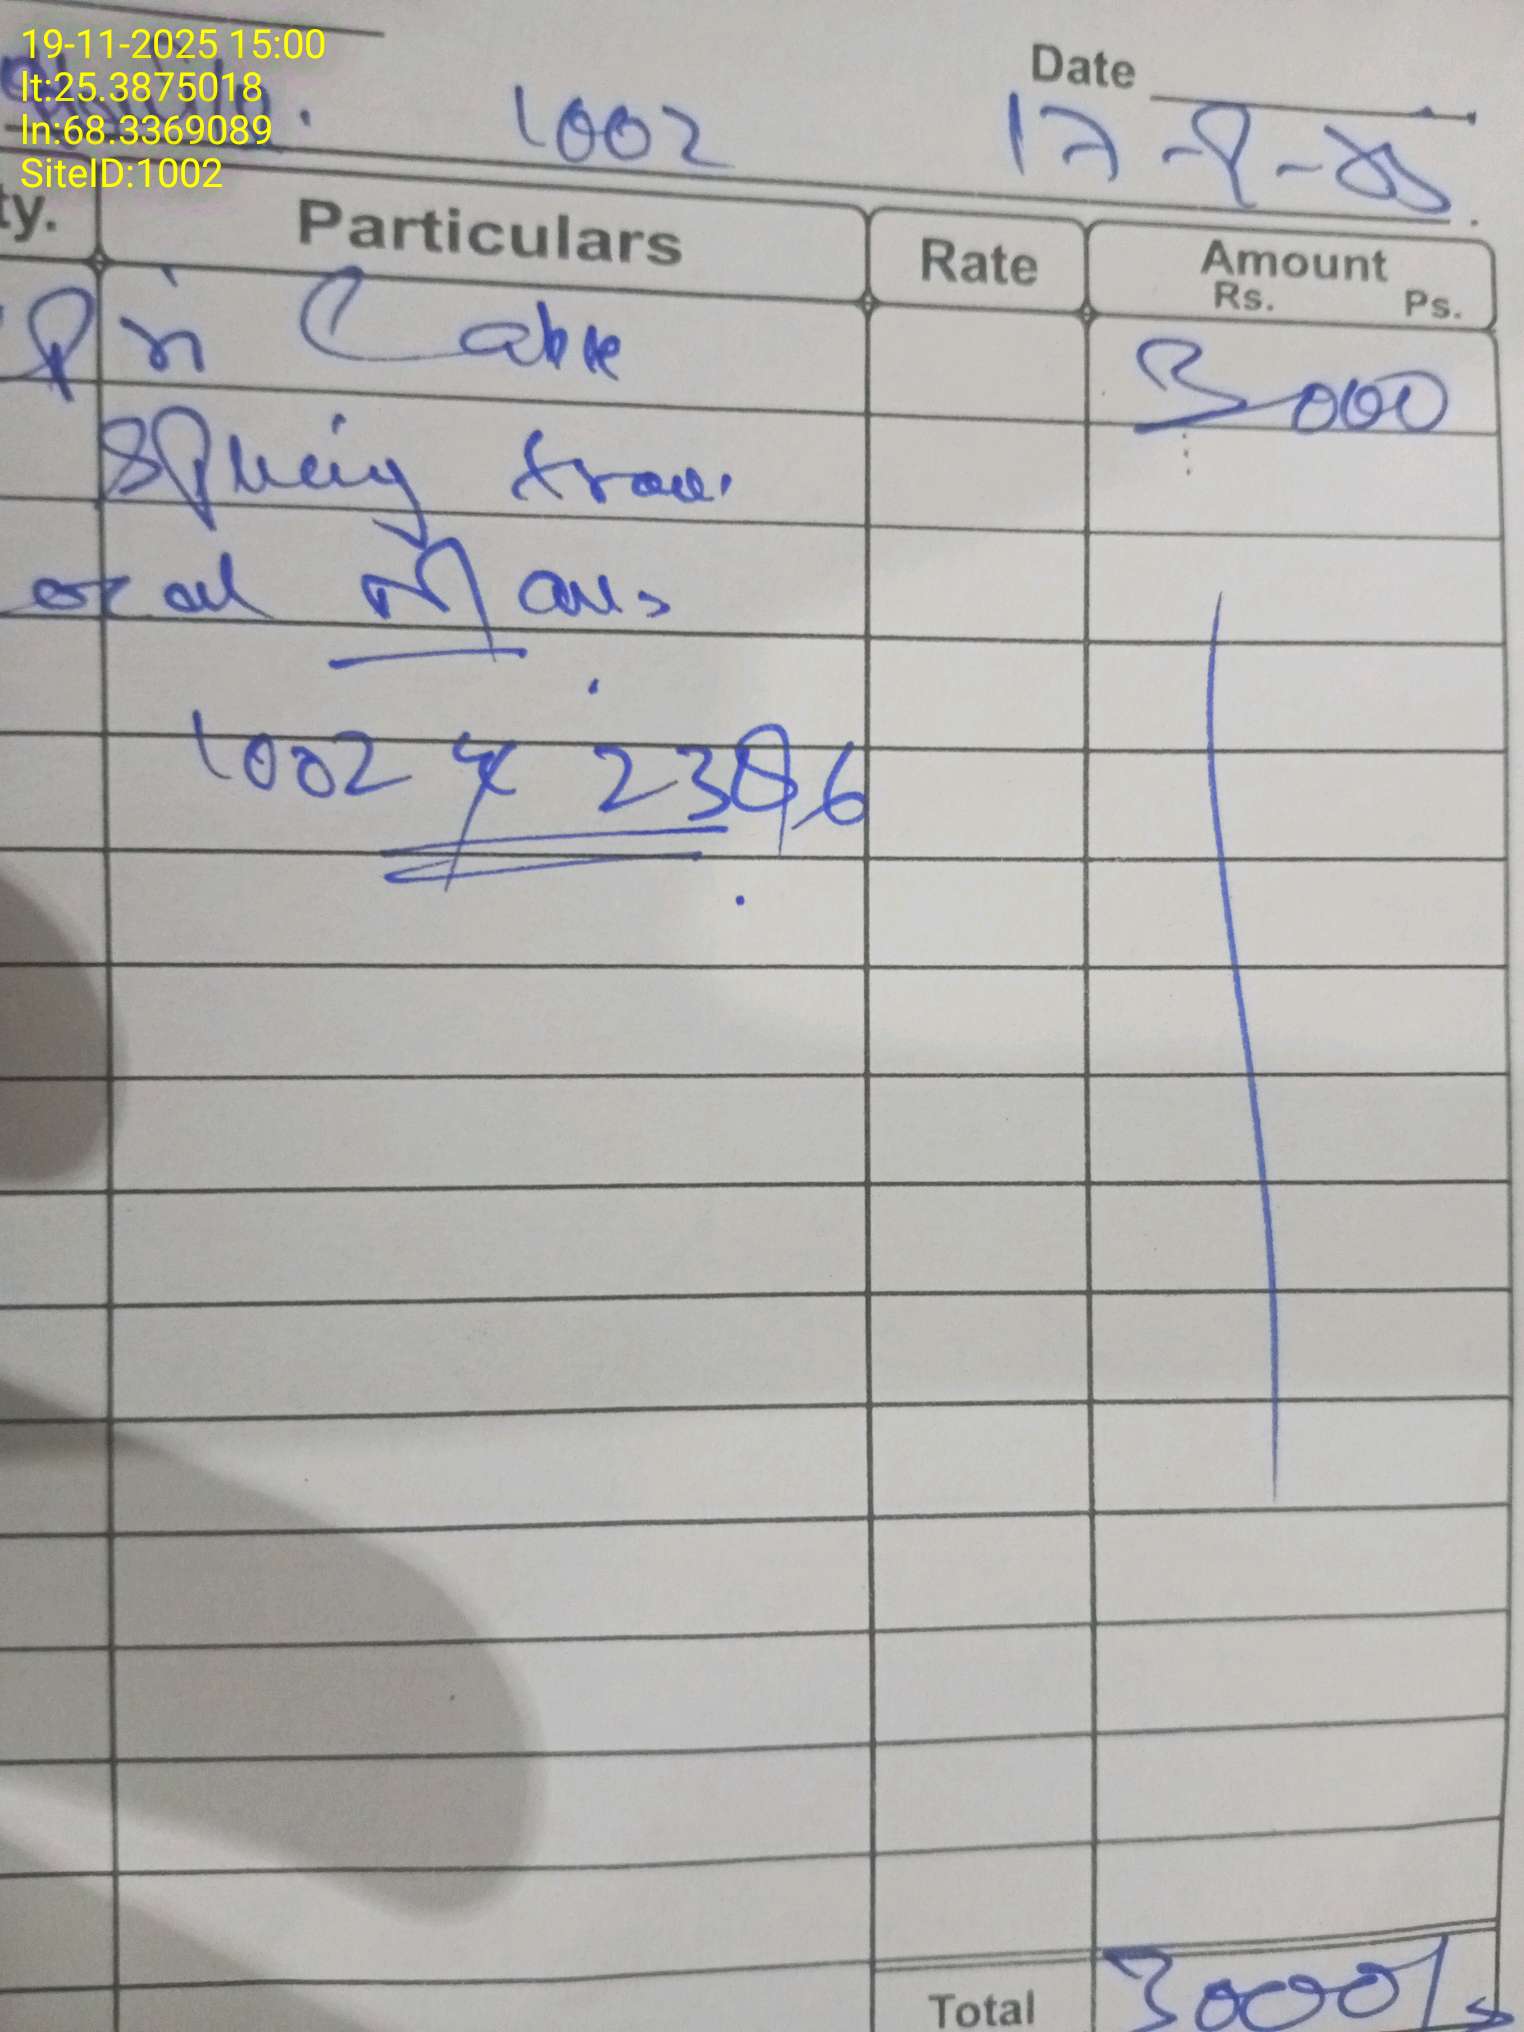 19-11-2025 15:00
lt:25.3875018
ln:68.3369089
SiteID:1002
Date
1002 17-9-25
ty. Particulars Rate Amount
Rs. Ps.
Cable 3000
Splicing from
1002 & 2396
Total 3000/s